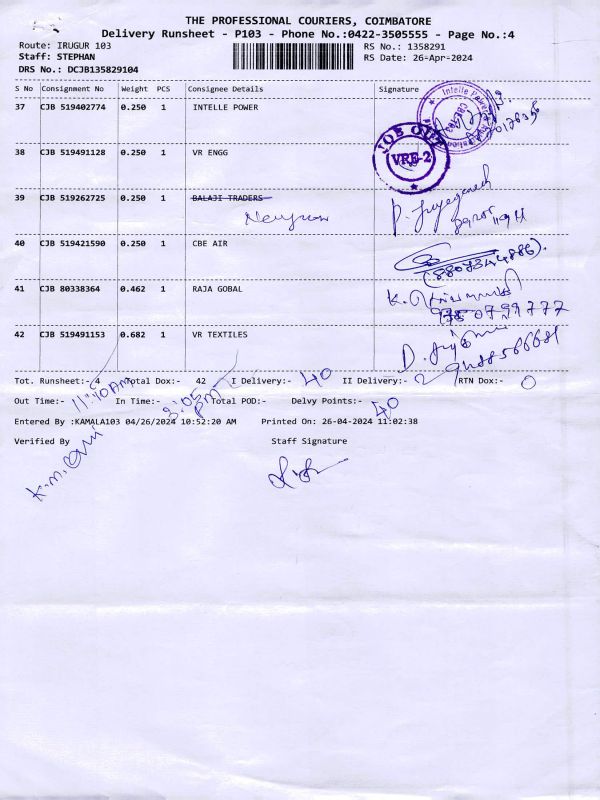 THE PROFESSIONAL COURIERS, COIMBATORE
Delivery Runsheet - P103 - Phone No.:0422-3505555 - Page No.:4
Route: IRUGUR 103
RS No.: 1358291
Staff: STEPHAN
RS Date: 26-Apr-2024
DRS No.: DCJB135829104
S No Consignment No Weight PCS Consignee Details Signature
37 CJB 519402774 0.250 1 INTELLE POWER
38 CJB 519491128 0.250 1 VR ENGG
JOB OUT
VRE-2
39 CJB 519262725 0.250 1 BALAJI TRADERS
40 CJB 519421590 0.250 1 CBE AIR
41 CJB 80338364 0.462 1 RAJA GOBAL
42 CJB 519491153 0.682 1 VR TEXTILES
Tot. Runsheet:- 4 Total Dox:- 42 I Delivery:- 40 II Delivery:- 2 RTN Dox:- 0
Out Time:- 11:40 AM In Time:- 3:05 PM Total POD:- Delvy Points:- 40
Entered By :KAMALA103 04/26/2024 10:52:20 AM Printed On: 26-04-2024 11:02:38
Verified By Staff Signature